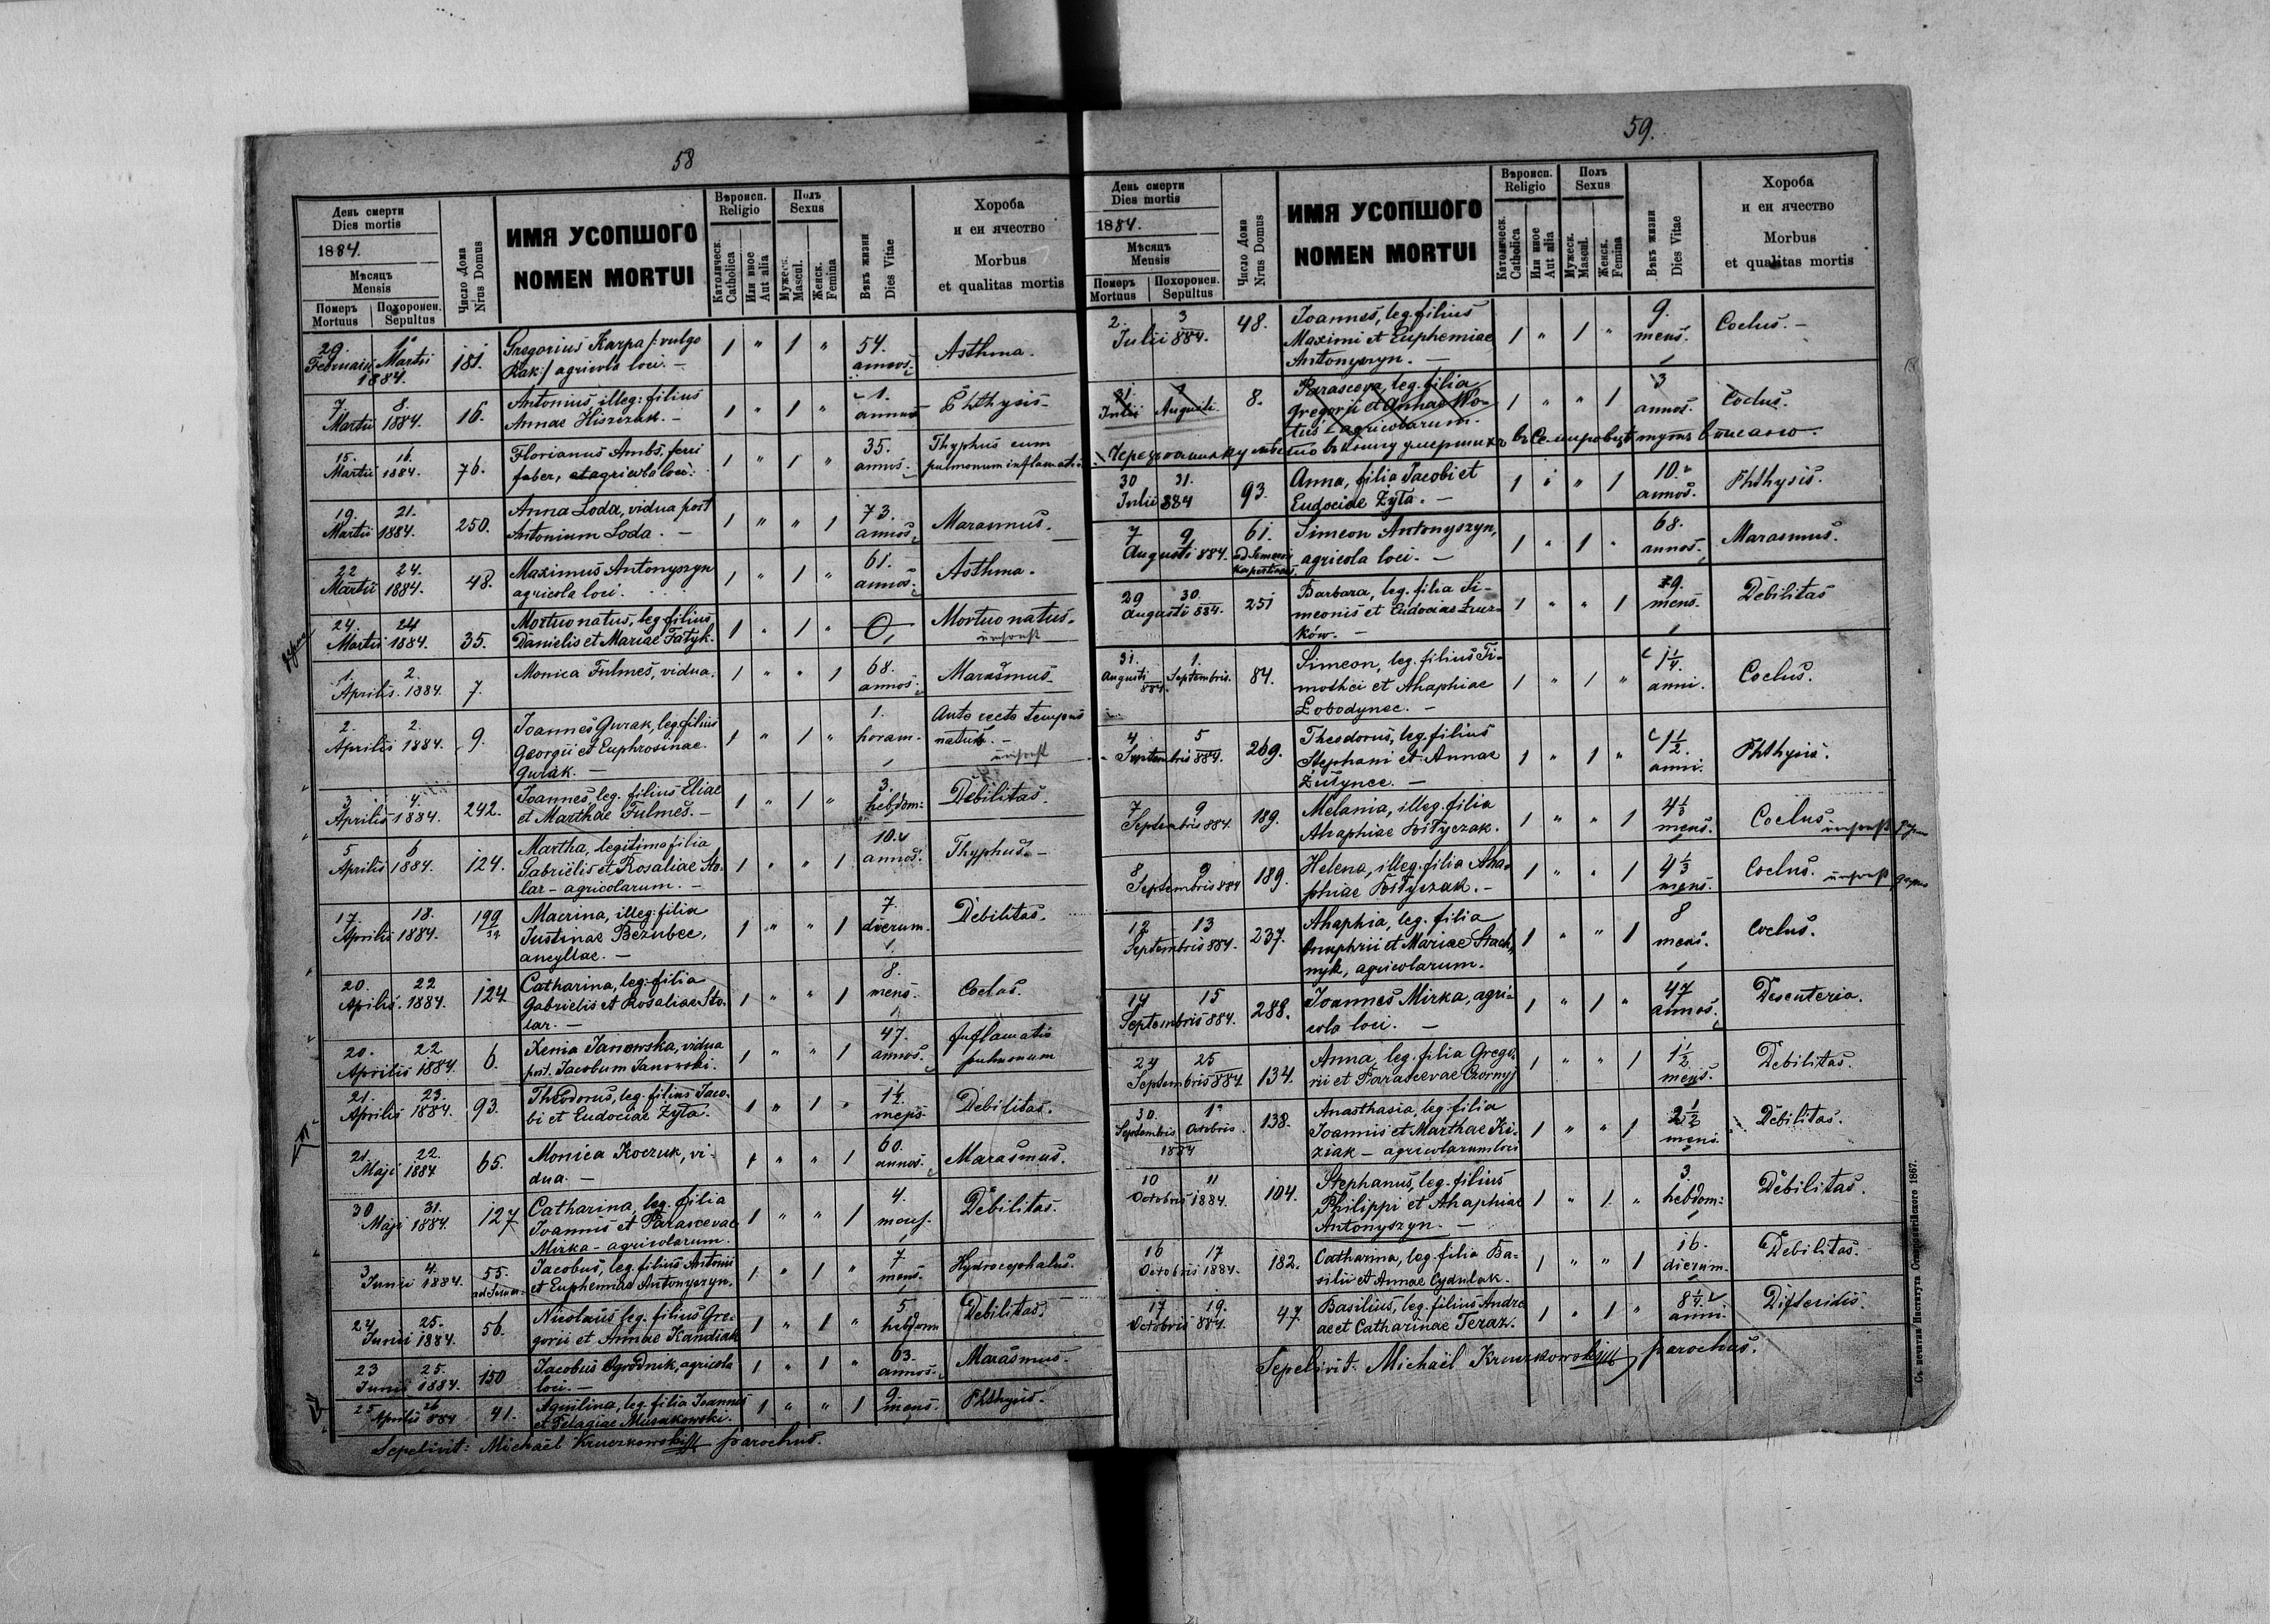 58
День смерти
Dies mortis
1884.
Мѣсяцъ
Mensis
Померъ Mortuus
Похоронен. Sepultus
Число Дома
Nrus Domus
ИМЯ УСОПШОГО
NOMEN MORTUI
Вѣроисп.
Religio
Католическ. Catholica
Или иное Aut alia
Полъ
Sexus
Мужеск. Mascul.
Женск. Femina
Вѣкъ жизни
Dies Vitae
Хороба
и еи ячество
Morbus
et qualitas mortis
29. Februarii 1° Martii 1884. 181. Gregorius Karpa /: vulgo 1 " 1 " 54. annos. Asthma.
Rak:/ agricola loci. –
7 Martii 8. 1884. 16. Antonius illeg: filius 1 " 1 " 1. annus Phthysis –
Annae Hiszczak. –
15. Martii 16. 1884. 76. Florianus Ambs, ferri 1 " 1 " 35. annos. Thyphus cum
faber, et agricola loci. pulmonum inflamatio
19. Martii 21. 1884. 250. Anna Loda, vidua post 1 " " 1 73. annos. Marasmus.
Antonium Loda. –
22 Martii 24. 1884. 48. Maximus Antonyszyn 1 " 1 " 61. annos. Asthma.
agricola loci.
24. Martii 24 1884. 35. Mortuo natus, leg filius, 1 " 1 " 0, Mortuo natus.
Danielis et Mariae Fatyk.
1. Aprilis 2. 1884. 7. Monica Fulmes, vidua. 1 " " 1 68. annos. Marasmus.
2. Aprilis 2. 1884. 9. Joannes Gurak, leg filius 1 " 1 " 1. horam. Ante recto tempus
Georgii et Euphrosinae. natus. –
Gurak. –
3 Aprilis 4. 1884. 242. Joannes leg. filius Eliae 1 " 1 " 3. hebdom: Debilitas.
et Marthae Fulmes. –
5 Aprilis 6 1884. 124. Martha, legitima filia 1 " " 1 10. annos. Thyphus. –
Gabriëlis et Rosaliae Sto-
lar – agricolarum. –
17. Aprilis 18. 1884. 199 Macrina, illeg: filia 1 " " 1 7. dierum. Debilitas.
Justinae Bezubec,
ancyllae. –
20. Aprilis 22 1884. 124 Catharina, leg: filia 1 " " 1 8. mens. Coclus.
Gabrielis et Rosaliae Sto-
lar. –
20. Aprilis 22 1884. 6. Xenia Janowska, vidua 1 " " 1 47. annos. Inflamatio
post. Jacobum Janowski. pulmonum
21. Aprilis 23. 1884. 93. Theodorus, leg. filius Jaco- 1 " 1 " 1½ mens. Debilitas.
bi et Eudociae Żyła.
21. Maji 22. 1884 65. Monica Koczuk, vi- 1 " " 1 60. annos. Marasmus.
dua. –
30 Maji 31. 1884. 127 Catharina, leg. filia 1 " " 1 4. mens. Debilitas.
Joannis et Parascevae
Mirka – agricolarum.
3 Junii 4. 1884. 55. Jacobus, leg. filius Antonii 1 " 1 " 7 mens. Hydrocephalus.
et Euphemiae Antonyszyn.
24 Junii 25. 1884. 56. Nicolaus leg. filius Gre- 1 " 1 " 5 hebdom Debilitas.
gorii et Annae Kandiak
23 Junii 25. 1884. 150 Jacobus Ogrodnik, agricola 1 " 1 " 63. annos. Marasmus.
loci. –
25 Aprilis 26 884 41. Aquilina, leg. filia Joannis 1 " " 1 9. mens. Phthysis.
et Pelagiae Musiakowski.
Sepelivit: Michaël Kruszkowski parochus.
59.
День смерти
Dies mortis
1884.
Мѣсяцъ
Mensis
Померъ Mortuus
Похоронен. Sepultus
Число Дома
Nrus Domus
ИМЯ УСОПШОГО
NOMEN MORTUI
Вѣроисп.
Religio
Католическ. Catholica
Или иное Aut alia
Полъ
Sexus
Мужеск. Mascul.
Женск. Femina
Вѣкъ жизни
Dies Vitae
Хороба
и еи ячество
Morbus
et qualitas mortis
2. Julii 3 884. 48. Joannes, leg. filius 1 " 1 " 9. mens. Coclus. –
Maximi et Euphemiae
Antonyszyn. –
31. Julii Augusti 8. Parasceva, leg. filia 1 " " 1 3 annos. Coclus.
Gregorii et Annae Wo-
tus – agricolarum.
30 Julii 31. 884 93. Anna, filia Jacobi et 1 " " 1 10. annos. Phthysis.
Eudociae Żyła. –
7 Augusti 9 884. 61. Simeon Antonyszyn, 1 " 1 " 68. annos. Marasmus.
agricola loci. –
29 Augusti 30. 884. 251 Barbara, leg. filia Si- 1 " " 1 9. mens. Debilitas
meonis et Eudociae Łucz-
ków. –
31. Augusti 1. Septembris. 884. 84. Simeon, leg. filius Ti- 1 " 1 " 1¼ anni. Coclus.
mothei et Ahaphiae
Łobodynec. –
4 Septembris 5 884. 269. Theodorus, leg. filius 1 " 1 " 1½ anni. Phthysis.
Stephani et Annae
Żułynec. –
7 Septembris 9 884. 189. Melania, illeg. filia 1 " " 1 4⅓ mens. Coclus
Ahaphiae
8 Septembris 9 884 189. Helena, illeg. filia Aha- 1 " " 1 4⅓ mens. Coclus.
phiae
12 Septembris 13 884. 237. Ahaphia, leg. filia 1 " " 1 8 mens. Coclus.
Onuphrii et Mariae Stach-
nyk, agricolarum.
14 Septembris 15 884. 288. Joannes Mirka, agri- 1 " 1 " 47 annos. Desenteria.
cola loci. –
24 Septembris 25 884 134. Anna, leg. filia Grego- 1 " " 1 1½ mens. Debilitas.
rii et Parascevae Czornyj
30. Septembris 1° Octobris 1884 138. Anasthasia, leg. filia 1 " " 1 2½ mens. Debilitas.
Joannis et Marthae Ki-
ziak – agricolarum loci
10 Octobris 11 1884. 104. Stephanus, leg. filius 1 " 1 " 3. hebdom: Debilitas.
Philippi et Ahaphiae
Antonyszyn. –
16 Octobris 17 1884. 182. Catharina, leg. filia Ba- 1 " " 1 16. dierum. Debilitas.
silii et Annae Cydulak.
17 Octobris 19. 884. 47. Basilius, leg. filius Andre 1 " 1 " 8¼ anni. Difteridis.
ae et Catharinae Teraz.
Sepelivit: Michaël Kruszkowski parochus.
Съ печатни Института Ставропигійского 1867.